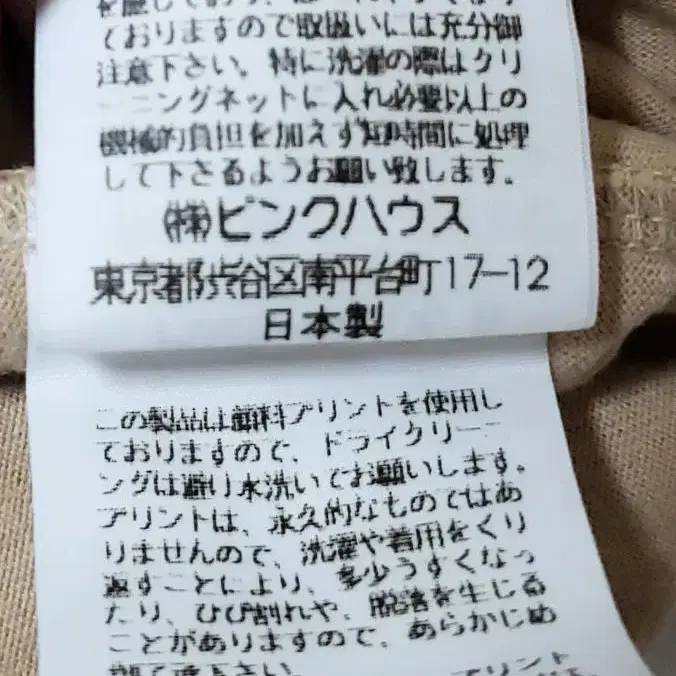 ておりますので取扱いには充分御
注意下さい。特に洗濯の際はクリ
ーニングネットに入れ必要以上の
機械的負担を加えず短時間に処理
して下さるようお願い致します。
㈱ピンクハウス
東京都渋谷区南平台町17-12
日本製
この製品は顔料プリントを使用し
ておりますので、ドライクリーニ
ングは避け水洗いでお願いします。
プリントは、永久的なものではあ
りませんので、洗濯や着用をくり
返すことにより、多少うすくなっ
たり、ひび割れや、脱落を生じる
ことがありますので、あらかじめ
プリント